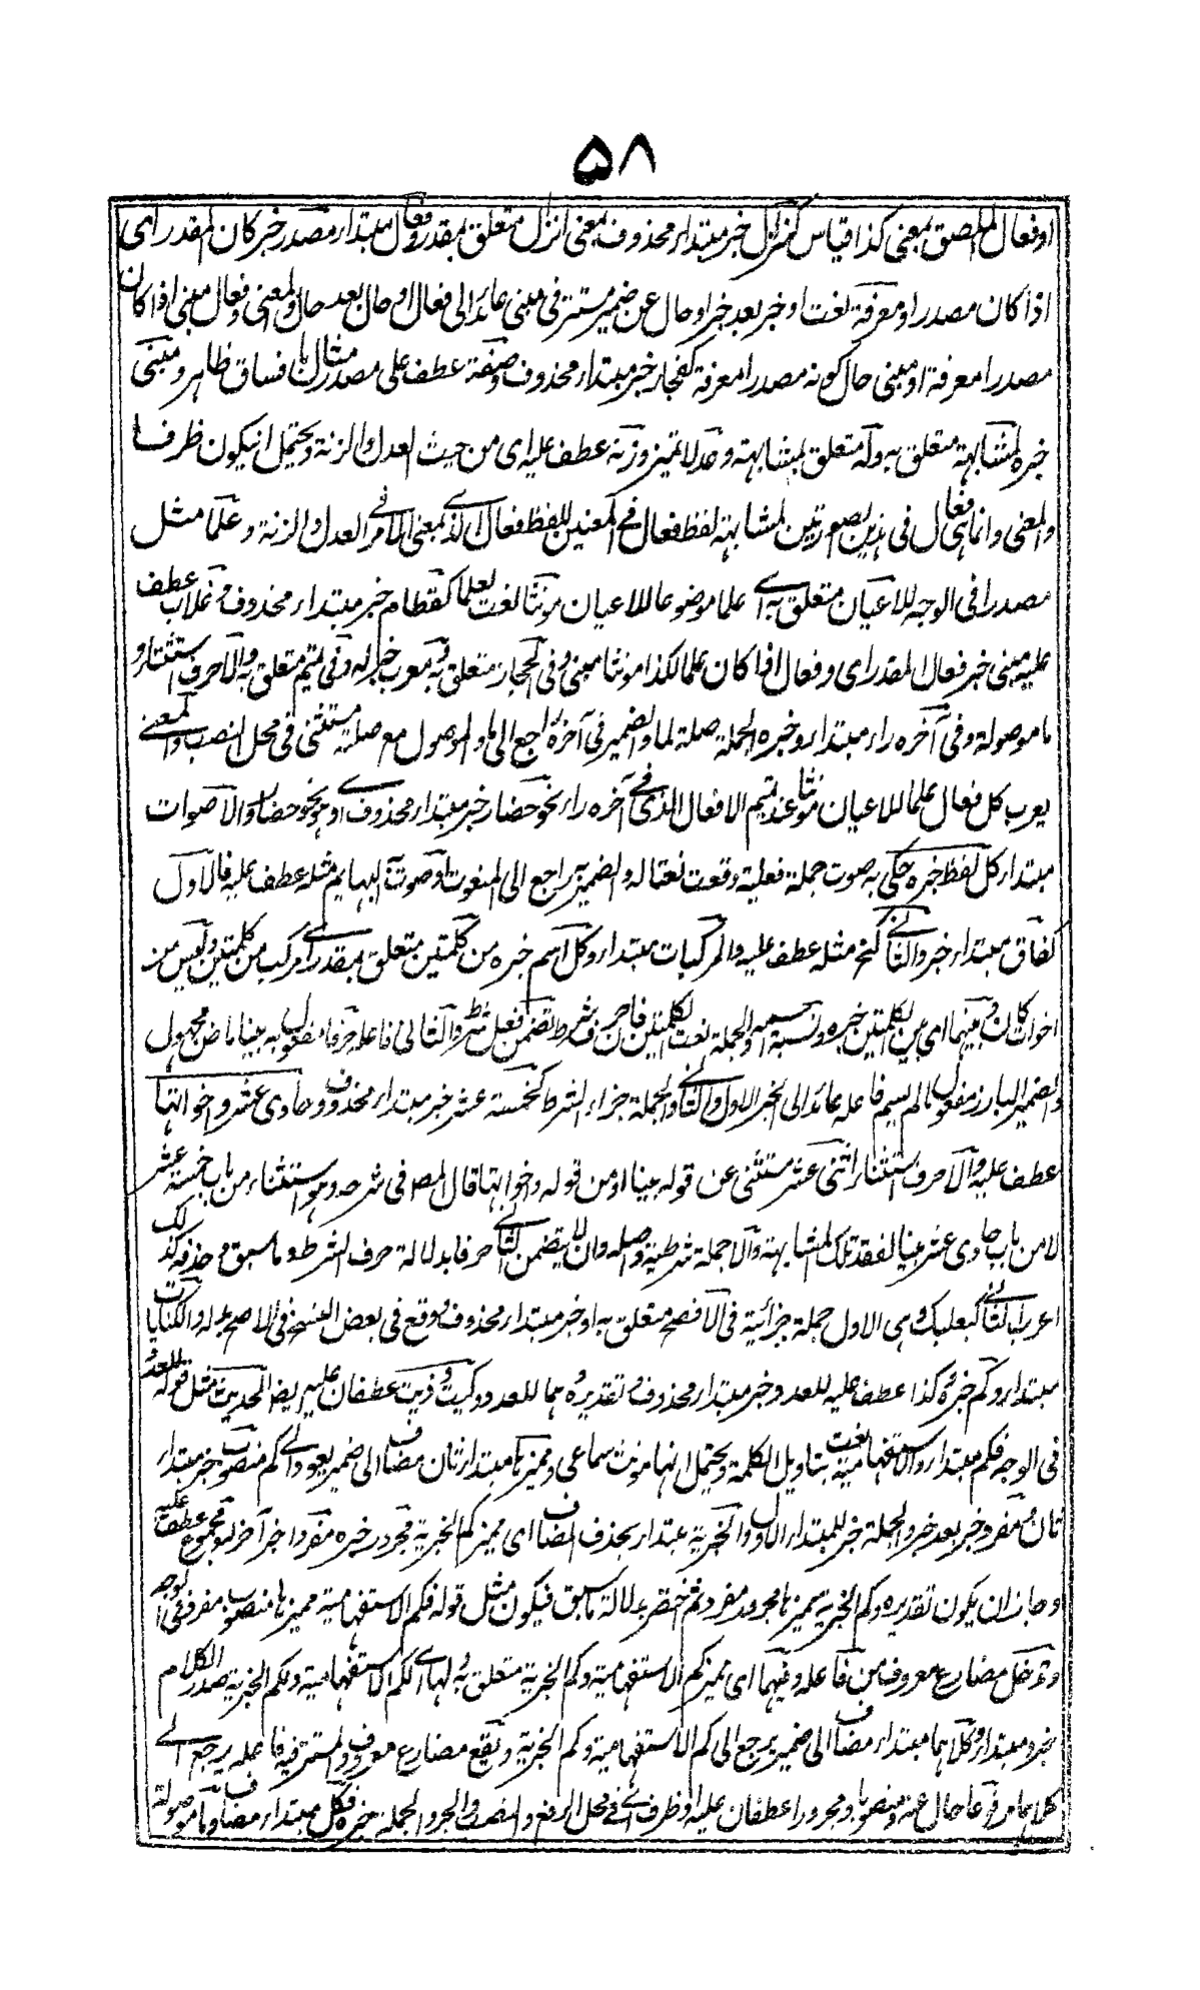 ۵۸
او فعال الملصق بمعنى كذا قياس كنزال خبر مبتدا محذوف بمعنى انزل متعلق بمقدر وفعال مبتدا مصدر خبر كان المقدر اى
اذا كان مصدرا ومعرفة نعت او خبر بعد خبر او حال عن ضمير مستتر فى مبنى عائد الى فعال او حال بعد حال والمعنى وفعال مبنى اذا كان
مصدرا معرفة او مبنى حال كونه مصدرا معرفة كفجار خبر مبتدا محذوف وصفة عطف على مصدر مثال يا فساق ظاهر ومبنى
خبره لمشابهته متعلق به وله متعلق بمشابهته وعدلا تميز وزنة عطف عليه اى من حيث العدل والزنة ويحتمل ان يكون ظرفا
والمعنى وانما بنى فعال فى هذين الصورتين لمشابهة لفظ فعال فى المعنيين للفظ فعال الذى بمعنى الامر فى العدل والزنة وعلما مثل
مصدرا فى الوجه للاعيان متعلق به اى علما موضوعا للاعيان مونثا نعت لعلما كقطام خبر مبتدا محذوف وغلاب عطف
عليه مبنى خبر فعال المقدر اى وفعال اذا كان علما لكذا مونثا مبنى وفى الحجاز متعلق به ومعرب خبر له وفى تميم متعلق به والا حرف استثناء و
ما موصولة وفى آخره راء مبتدا وخبره الجملة صلة لما والضمير فى آخره راجع الى ما والموصول مع صلته مستثنى فى محل النصب والمعنى
يعرب كل فعال علما للاعيان مونثا عند تميم الا فعال الذى فى آخره راء نحو حضار خبر مبتدا محذوف اى وهو نحو حضار والاصوات
مبتدا كل لفظ خبره حكى به صوت جملة فعلية وقعت نعتا له والضمير به راجع الى المنعوت او صوت به البهايم مثله عطف عليه فالاول
كغاق مبتدا وخبر والثانى كنخ مثله عطف عليه والمركبات مبتدا وكل اسم خبره من كلمتين متعلق بمقدر اى مركب من كلمتين وليس من
اخوات كان وبينهما اى بين الكلمتين خبره ونسبة اسمه والجملة نعت لكلمتين فان حرف شرط تضمن فعل شرط والثانى فاعله حرفا مفعول به بنيا ماض مجهول
والضمير البارز مفعول ما لم يسم فاعله عائد الى الخبر الاول والثانى والجملة جزاء الشرط كخمسة عشر خبر مبتدا محذوف وحادى عشر واخواتها
عطف عليه والا حرف استثناء اثنى عشر مستثنى عن قوله بنيا او من قوله واخواتها قال المص فى شرحه وهو استثناء من باب خمسة عشر
لا من باب حادى عشر بنيا لفقد تلك المشابهة والا جملة شرطية اصله وان لا يتضمن الثانى حرفا بدلالة حرف الشرط وما سبق وحذف كذلك
اعرب الثانى كبعلبك وبنى الاول جملة جزائية فى الافصح متعلق به او خبر مبتدا محذوف ووقع فى بعض النسخ فى الاصح بدله والكنايات
مبتدا وكم خبره وكذا عطف عليه للعدد خبر مبتدا محذوف تقديره هما للعدد وكيت وذيت عطفان عليه ايضا للحديث مثل قوله للعدد
فى الوجه فكم مبتدا والاستفهامية نعت بتاويل الكلمة ويحتمل انها مونث سماعى ومميزها مبتدا ثان مضاف الى ضمير يعود الى كم منصوب خبر مبتدا
ثان ومفرد خبر بعد خبر والجملة خبر للمبتدا الاول والخبرية مبتدا بحذف المضاف اى مميز كم الخبرية مجرور خبره مفرد اخر آخر له ومجموع عطف عليه
وجاز ان يكون تقديره وكم الخبرية مميزها مجرور مفرد ثم اختصر بدلالة ما سبق فيكون مثل قوله فكم الاستفهامية مميزها منصوب مفرد فى الوجه
وتدخل مضارع معروف من فاعله وفيهما اى مميز كم الاستفهامية وكم الخبرية متعلق به ولهما اى لكم الاستفهامية ولكم الخبرية صدر الكلام
خبر ومبتدا وكلاهما مبتدا مضاف الى ضمير يرجع الى كم الاستفهامية وكم الخبرية ويقع مضارع معروف والمستتر فيه فاعله يرجع الى
كلاهما مرفوعا حال عنه ومنصوبا ومجرورا عطفان عليه او ظرف اى فى محل الرفع والنصب والجر والجملة خبره فكل مبتدا مضاف وما موصولة